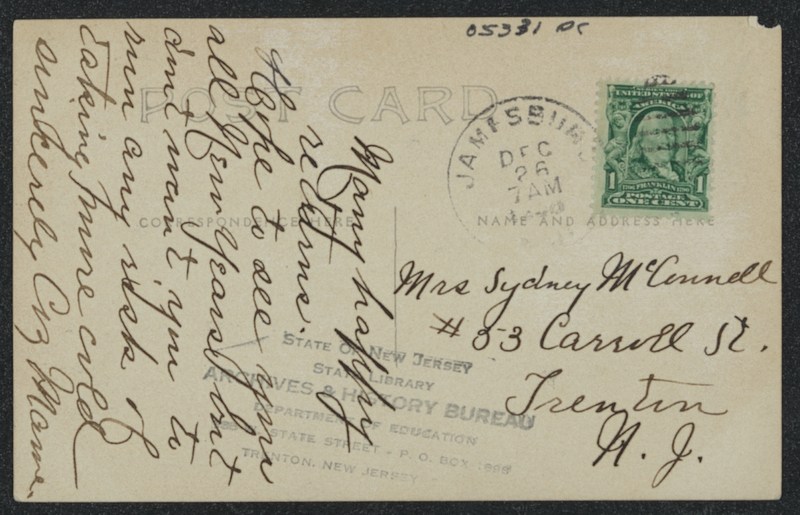 05331 PC
POST CARD
JAMESBURG
DEC
26
7AM
SERIES 1902
UNITED STATES OF
AMERICA
1 1706 FRANKLIN 1790 1
POSTAGE
ONE CENT
CORRESPONDENCE HERE
NAME AND ADDRESS HERE
Many happy
returns.
Hope to see you
all New Years but
dont want you to
run any risk of
taking more cold
sinkerely Cuz Mame.
Mrs Sydney McConnell
# 53 Carroll St.
Trenton
N. J.
STATE OF NEW JERSEY
STATE LIBRARY
ARCHIVES & HISTORY BUREAU
DEPARTMENT OF EDUCATION
STATE STREET - P. O. BOX 1898
TRENTON, NEW JERSEY